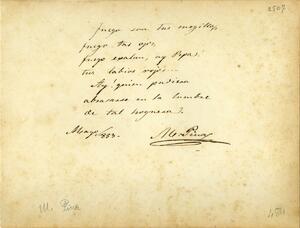 2507
Fuego son tus mejillas,
fuego tus ojos,
fuego exalan, ay Pepa,
tus labios rojos...
Ay! quien pudiera
abrasarse en la lumbre
de tal hoguera?
Mayo/853.
M. Pina
M. Pina